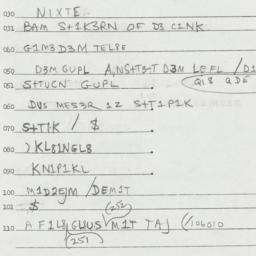 030 NIXTE
031 BAM S+1K3RN OF D3 C1NK
060 G1M3D3M TEL8E
050 D3M GUPL A,NS+T3T D3M LEFL / D1
051 S+TUCN GUPL . Q18 QDE
060 DVS MES3R 12 S+T1P1K
070 S+T1K / $ .
080 ) KL81NGL8 .
090 KN1P1KL .
100 M1D2EJM / DEM1T
101 $ . (252)
110 A F1L8 GLIUS M1T TAJ (/106010
(251)